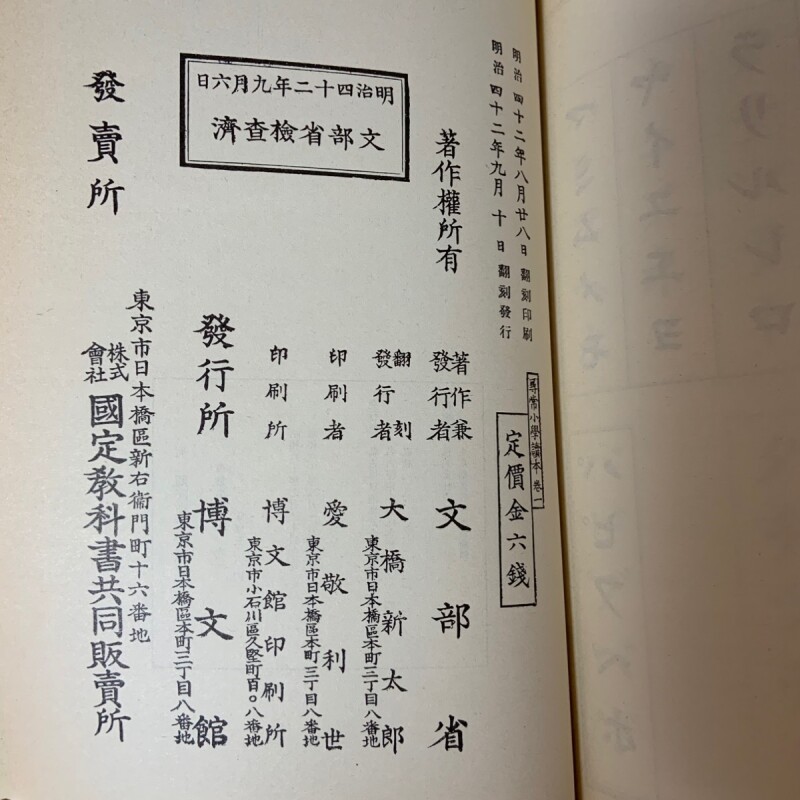 明治四十二年八月廿八日翻刻印刷
明治四十二年九月十日翻刻發行
尋常小學讀本 卷一
定價金六錢
著作權所有
著作兼
發行者
文部省
翻刻
發行者
東京市日本橋區本町三丁目八番地
大橋新太郎
印刷者
東京市日本橋區本町三丁目八番地
愛敬利世
印刷所
東京市小石川區久堅町百〇八番地
博文館印刷所
發行所
東京市日本橋區本町三丁目八番地
博文館
明治四十二年九月六日
文部省檢查濟
發賣所
東京市日本橋區新右衞門町十六番地
株式
會社
國定教科書共同販賣所